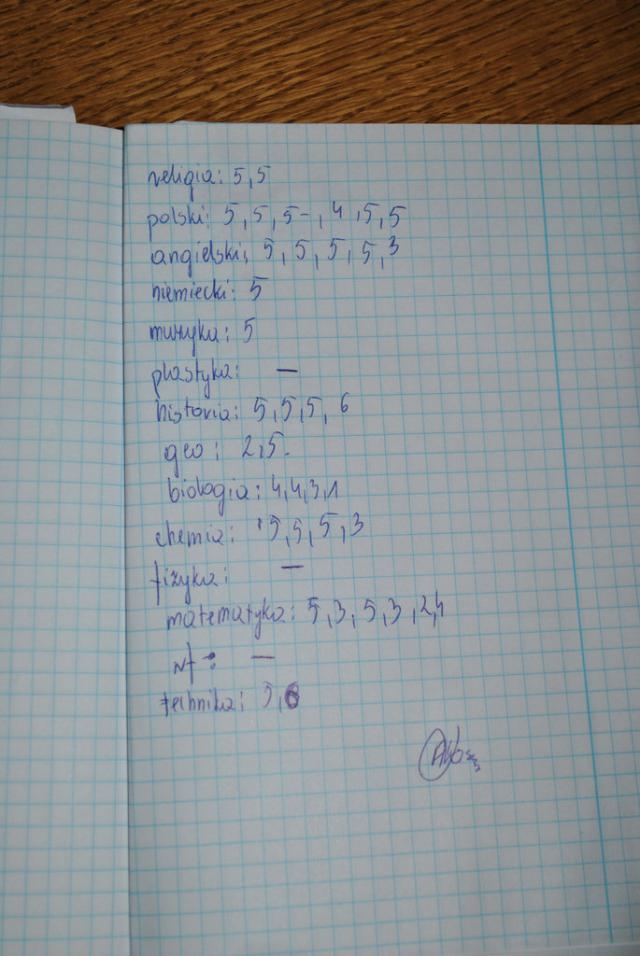 religia: 5,5
polski: 5,5,5-,4,5,5
angielski; 5,5,5,5,3
niemiecki: 5
muzyka: 5
plastyka: —
historia: 5,5,5, 6
geo: 2,5.
biologia: 4,4,3,1
chemia: 5,5,5,3
fizyka: —
matematyka: 5,3,5,3,2,4
wf: —
technika: 5,6